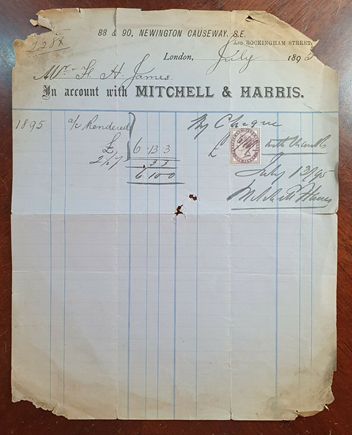 88 & 90, NEWINGTON CAUSEWAY, S.E.
AND ROCKINGHAM STREET
London, July 1895
Mr. H James
In account with MITCHELL & HARRIS.
1895 a/c Rendered
£ 6 13 3
3 3
6 10 0
By Cheque
£
with thanks
July 13/95
Mitchell & Harris